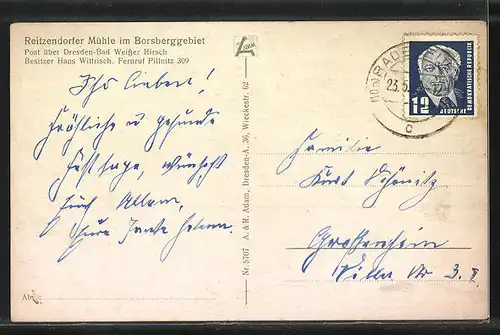 Reitzendorfer Mühle im Borsberggebiet
Post über Dresden-Bad Weißer Hirsch
Besitzer Hans Wittrisch. Fernruf Pillnitz 309
Ihr Lieben!
Fröhliche und gesunde
Festtage, wünscht
Euch Allen,
Eure Tante Helene.
Nr. 5707 A. & R. Adam, Dresden-A. 36, Wieckestr. 62
RADE
23.5
c
12
DEUTSCHE
DEMOKRATISCHE REPUBLIK
Familie
Kurt
Großenhain
Nr 3.
Ab